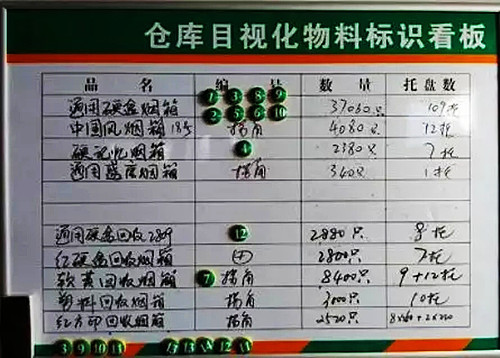 仓库目视化物料标识看板
品 名 编 号 数 量 托 盘 数
通用硬盒烟箱 1 3 8 9 2 5 6 10 37060只 109托
中国风烟箱 18号 拐角 4080只 12托
硬记忆烟箱 4 2380只 7托
通用盛度烟箱 拐角 340只 1托
通用硬盒回收2809 12 2880只 8托
红硬盒回收烟箱 2800只 7托
软黄回收烟箱 7 拐角 8400只 9+12托
塑料回收烟箱 拐角 3000只 10托
红方印回收烟箱 拐角 2520只
3 9 10 11